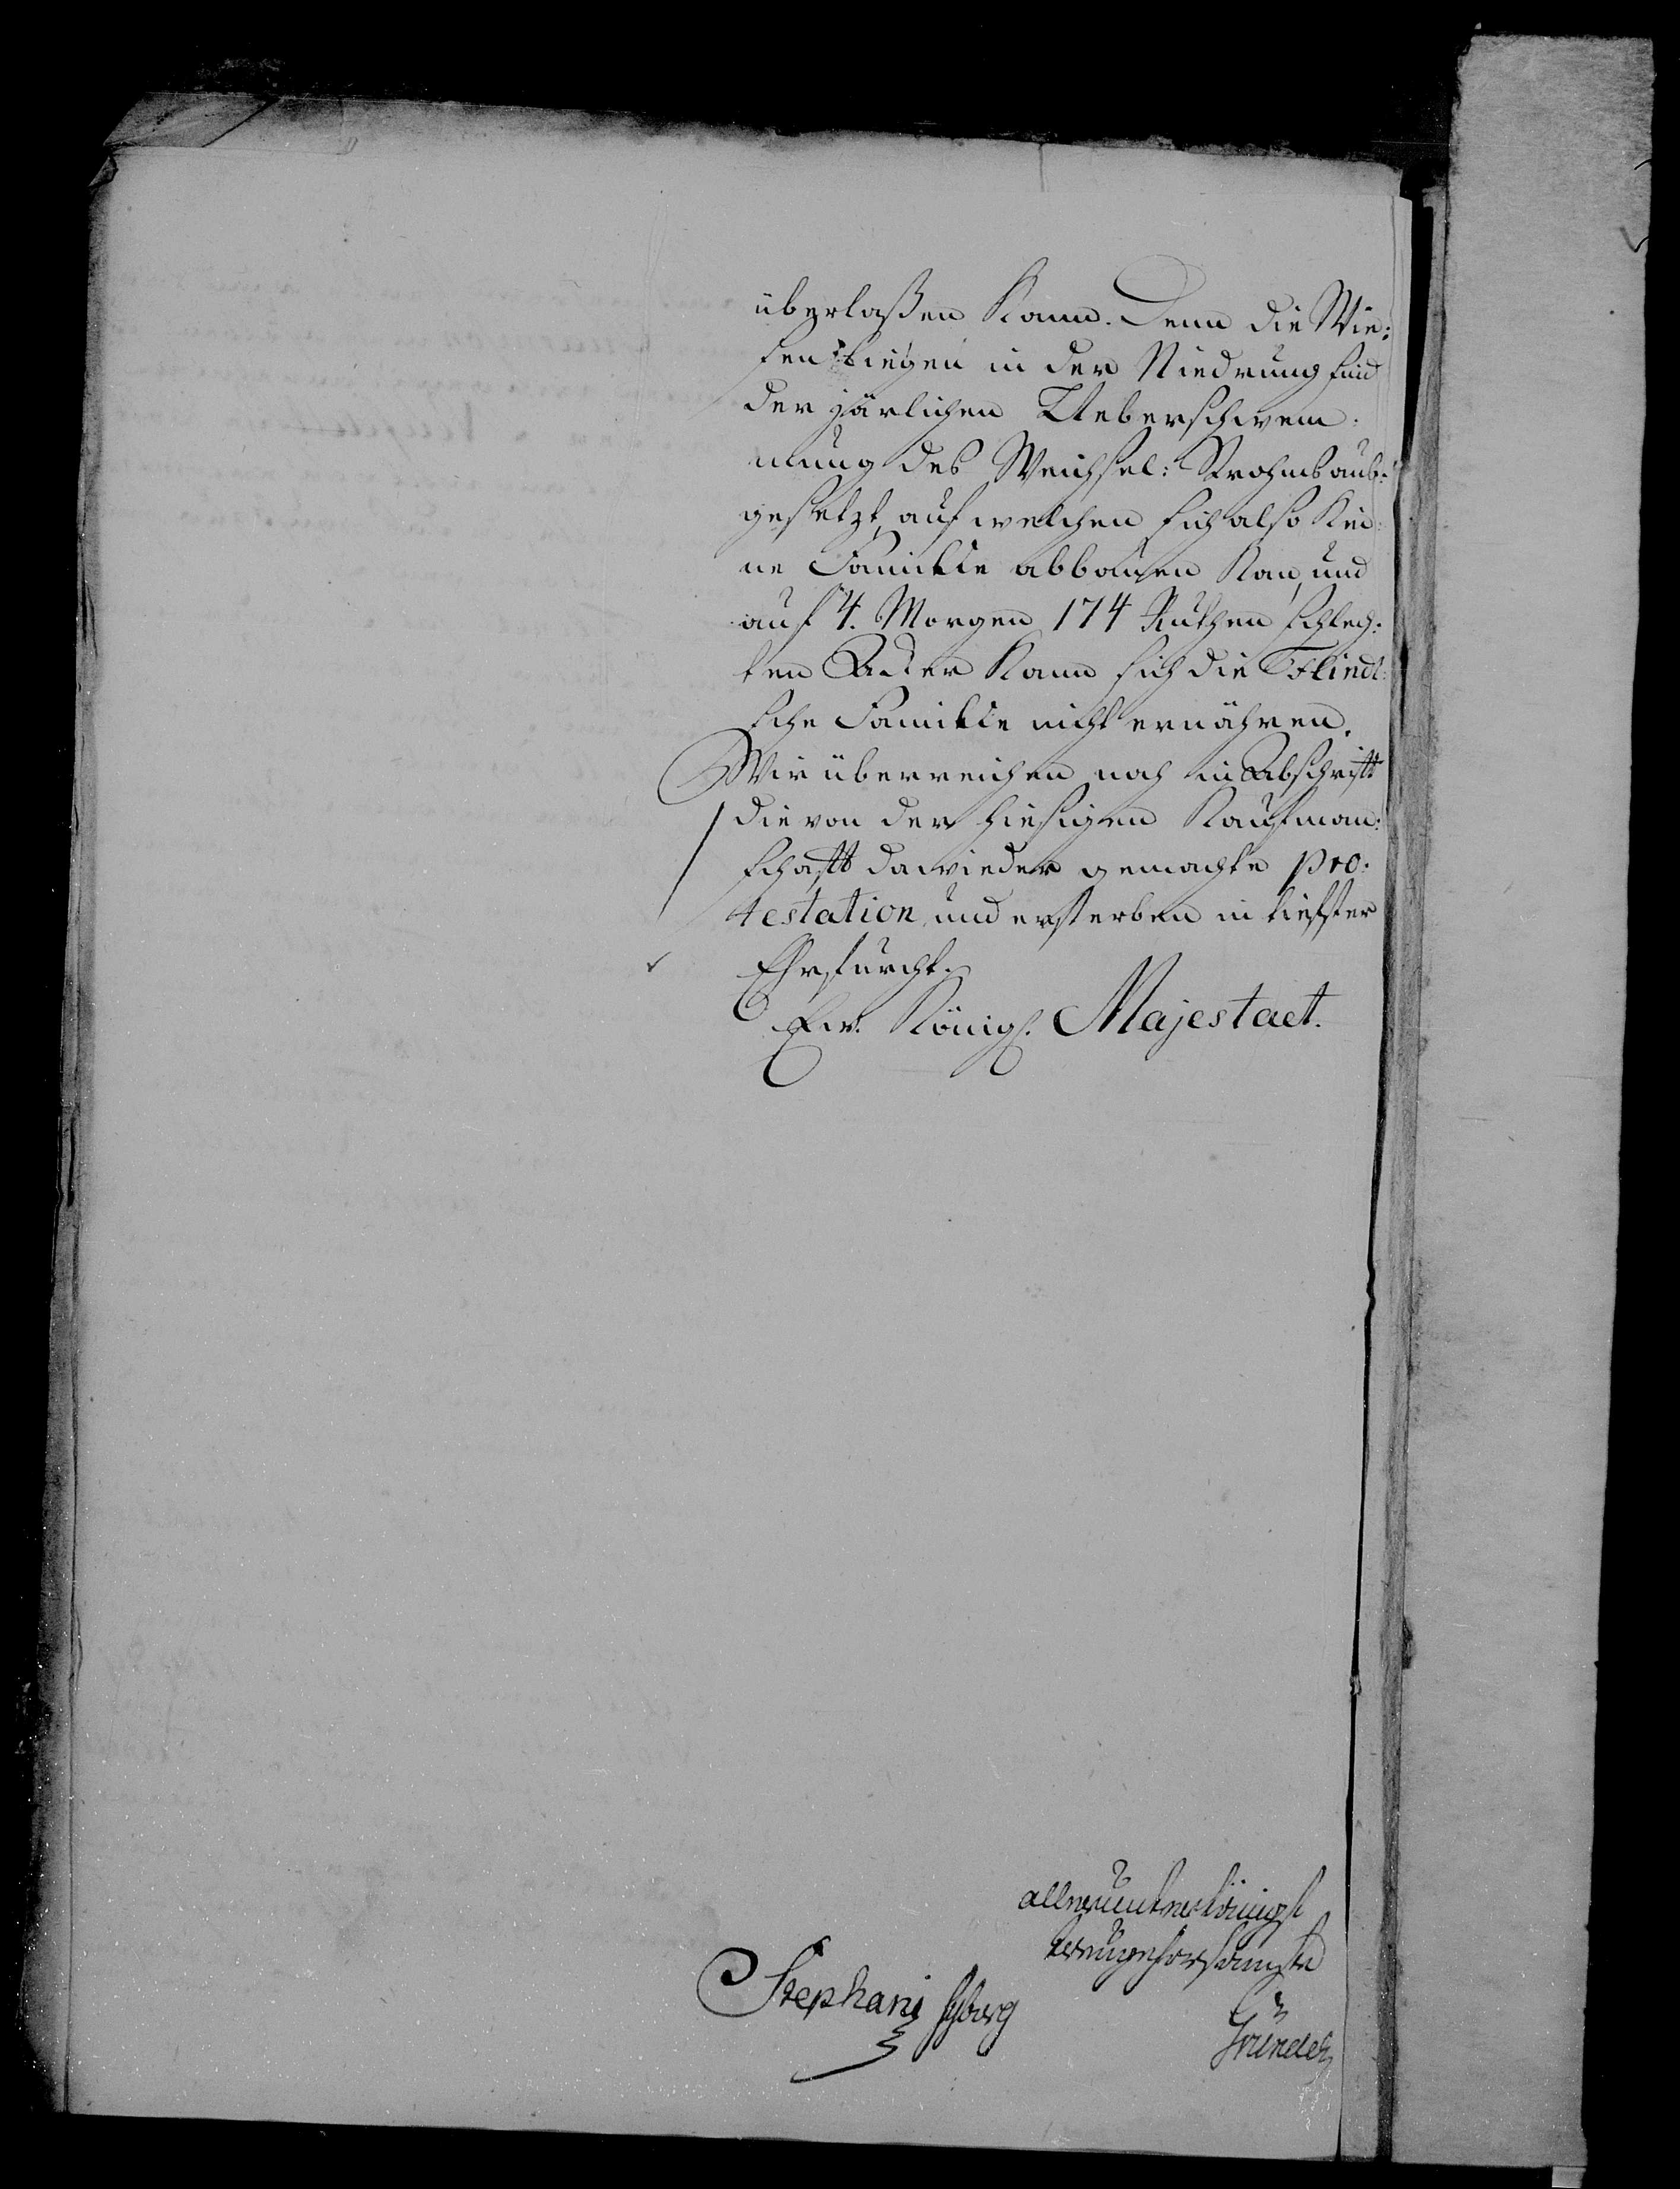 überlaßen kann. Denn die Wie:
sen liegen in der Niedrung sind
der järlichen Ueberschwem:
mung des Weichsel: Strohms aus:
gesetzt, auf welchen sich also kei:
ne Familie abbauen kan, und
auf 4. Morgen 174 Ruthen schlech:
ten Acker kann sich die
sche Familie nicht ernähren.
Wir überreichen noch in Abschrifft
die von der hiesigen Kaufman:
schafft dawieder gemachte pro:
testation, und ersterben in tiefster
Ehrfurcht.
Ew. Königl. Majestaet.
allerunterthänigst
treugehorsamste
Stephani